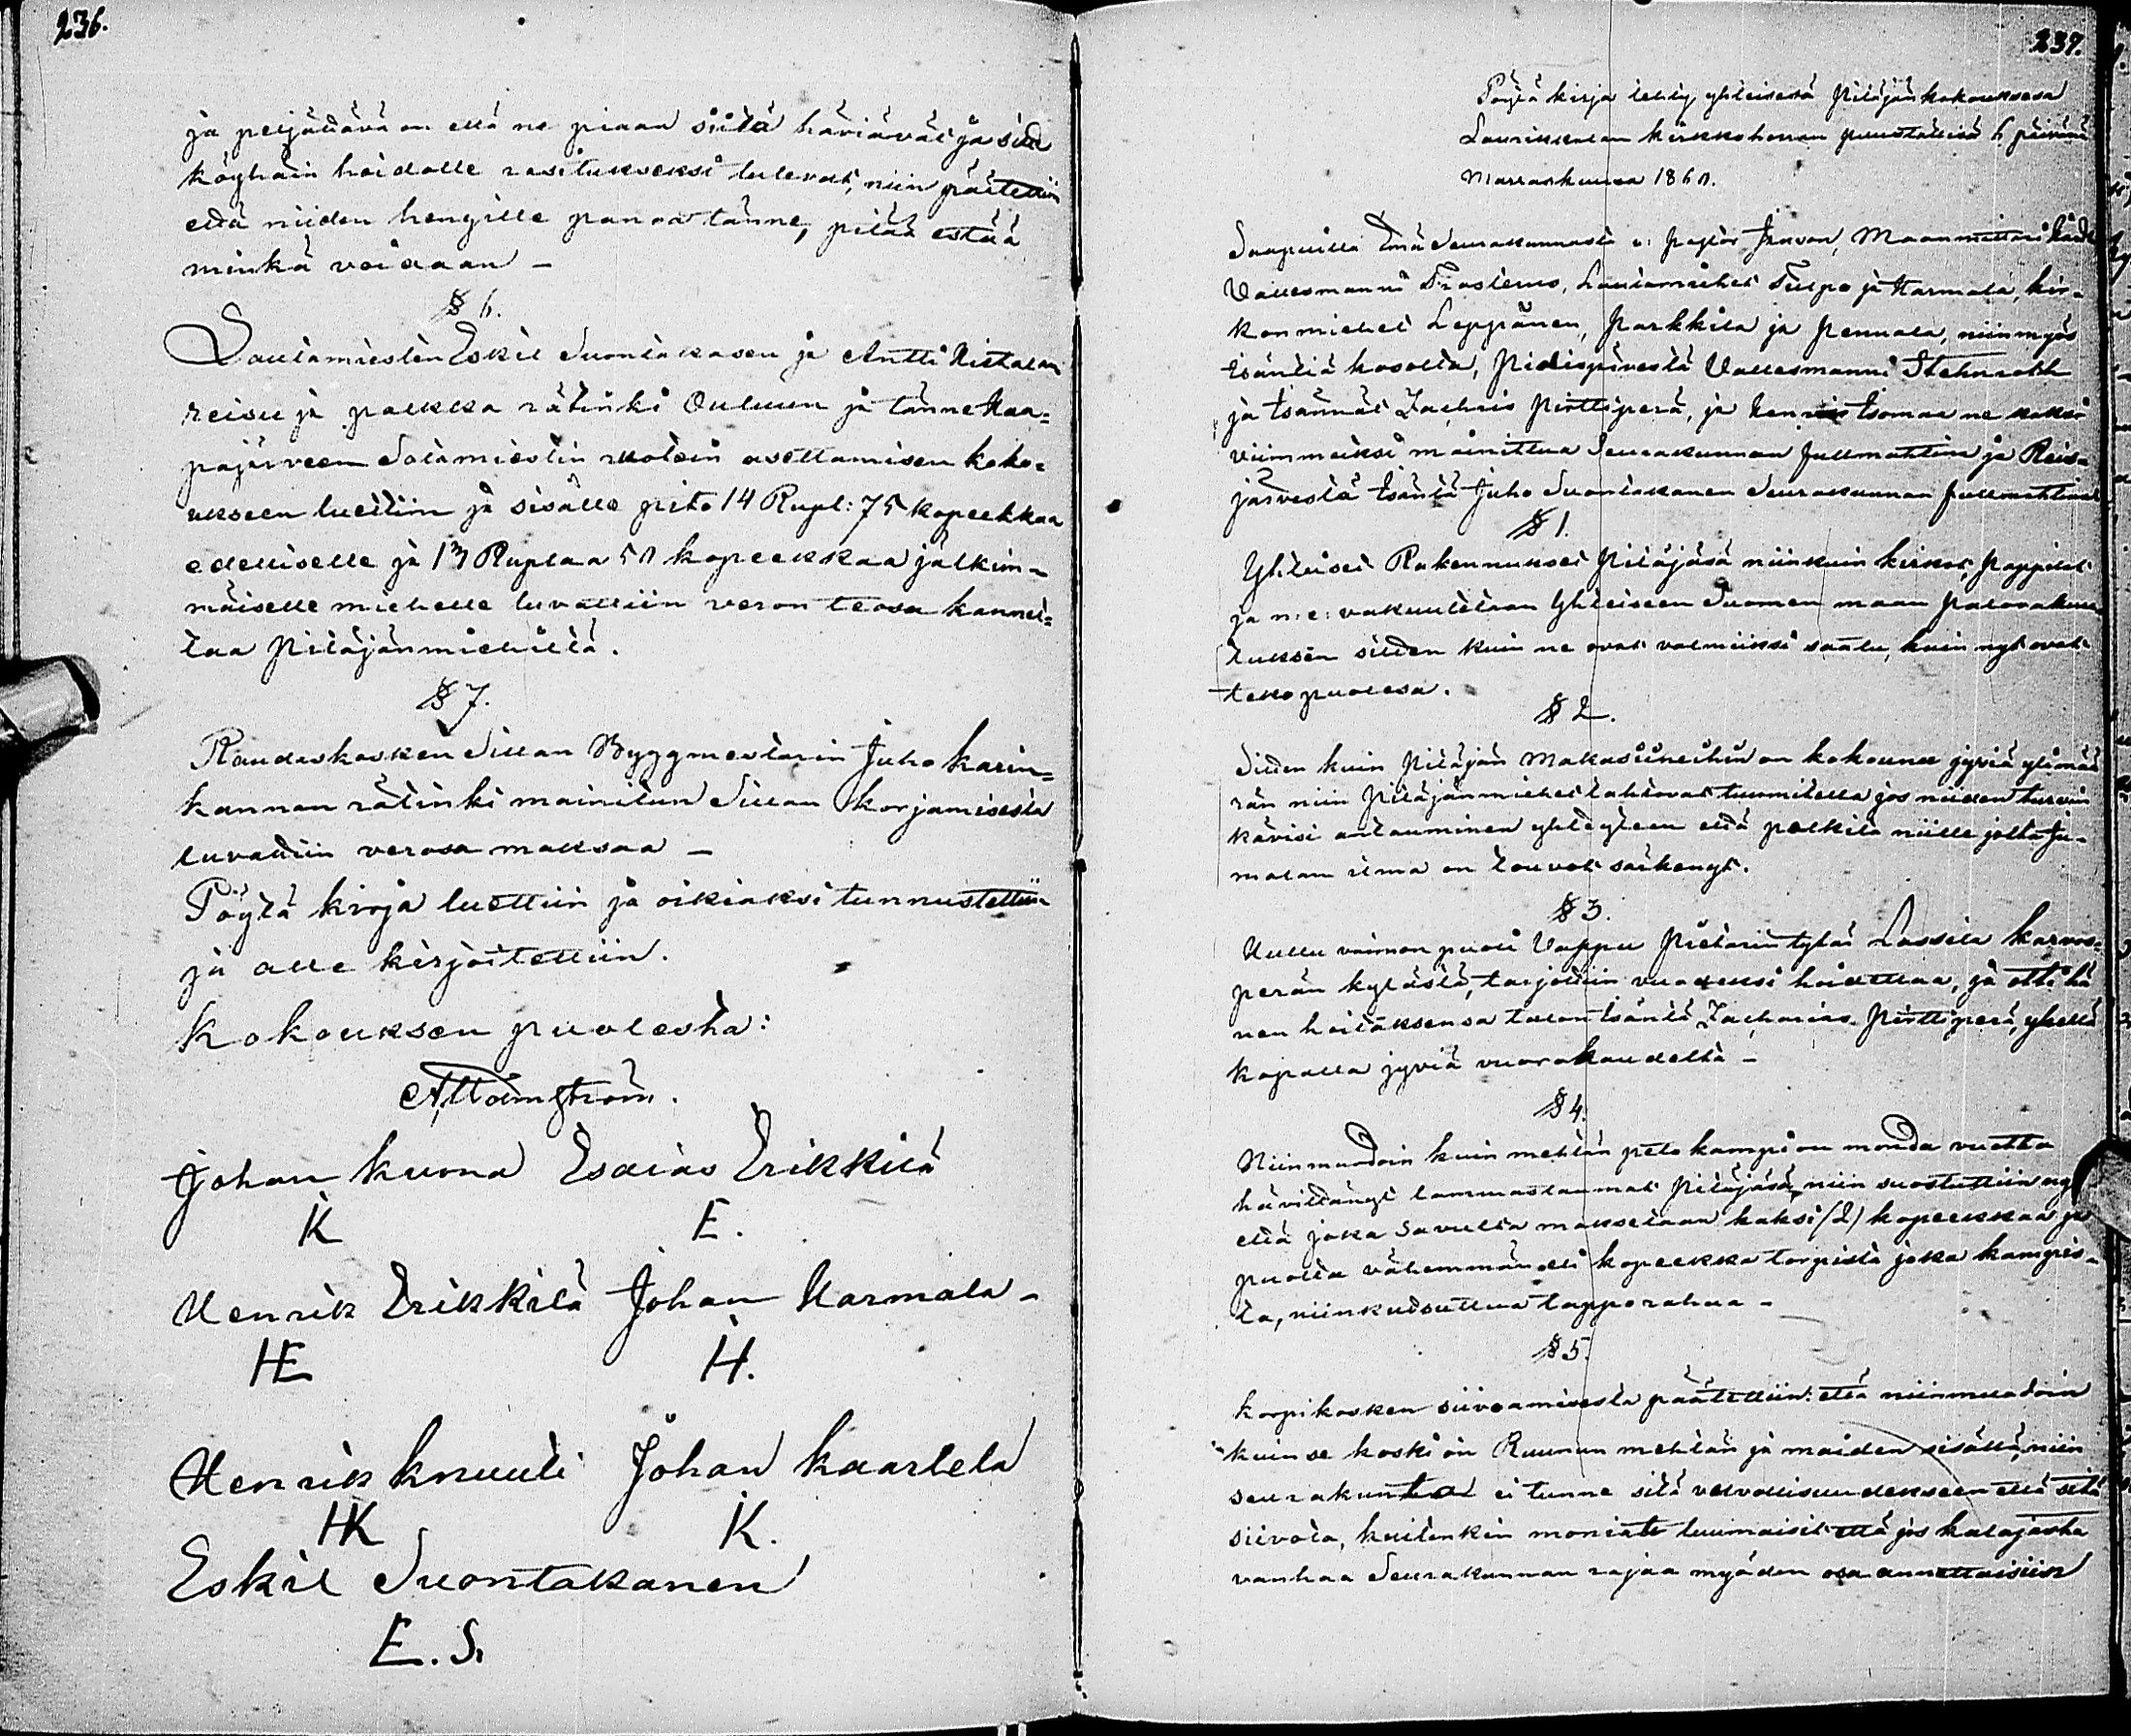 236.
ja peljättävä on että ne pian siitä häviävät ja sitte
köyhäin hoidolle rasitukseksi tulevat, niin päätettiin
että niiden hengille panoa tänne, pitää estää
minkä voidaan -
§ 6.
Lautamiesten Eskil Suontakasen ja Antti Kiskalan
reisu ja palkka rätinki Ouluun ja tänne Haa-
pajärveen Sotamiestin ruotein asettamisen koko-
ukseen luettiin ja sisälle piti 14 Rupl: 75 kopeekkaa
edelliselle ja 13 Ruplaa 50 kopeekkaa jälkim-
mäiselle miehelle luvattiin veron teosa kannet-
taa Pitäjänmiehiltä.
§ 7.
Raudaskosken Sillan Byggmestarin Juho Karin-
kannan rätinki mainitun Sillan korjamisesta
luvattiin verosa maksaa -
Pöytä kirja luettiin ja oikiaksi tunnustettiin
ja alle kirjoitettiin.
Kokouksen puolesta:
Johan Kuona Esaias Erikkilä
K E.
Henrik Erikkilä Johan Harmala -
HE H.
Henrik Knuuti Johan Kaarlela
HK K.
Eskil Suontakanen
E. S.
237.
Pöytä kirja tehty yhteisesä Pitäjänkokouksesa
kirkkoherran puustellisa 6 päivänä
Marraskuusa 1860.
Saapuilla Emäseurakunnasta v: Pastor Maanmittari
Vallesmanni Lautamiehet Tuepo ja Harmala, kir-
konmiehet Leppänen, Parkkila ja Pennala, niinmyös
Isäntiä kosolta, Pidisjärvestä Vallesmanni Stehnroth
ja Isännät Zachris Pirttiperä, ja Henrik Isomaa ne kaksi
viimmeksi mainittua Seurakunnan fullmahtina ja Reis-
järvestä Isäntä Juho Suontakanen Seurakunnan fullmahtina
§ 1.
Yhteiset Rakennukset Pitäjäsä niinkuin kirkot, Pappilat
ja n: e: vakuutetaan Yhteiseen Suomen maan Palovakuu-
tuksen sitten kuin ne ovat valmiiksi saatu, kuin nyt ovat
tekopuolesa.
§ 2.
Sitten kuin Pitäjän Makasiineihin on kokounu jyviä ylimää-
rän niin Pitäjänmiehet tahtovat tuumitella jos niiden turvin
kävisi antauminen yhteyteen että palkita niille joilta Ju-
malan ilma on touvot särkenyt.
§ 3.
Hullu vaimon puoli Vappu Pietarin tytär Lassila Karvos-
perän kylästä, tarjottiin vuodeksi hoidettaa, ja otti hä
nen hoitaksensa talon Isäntä Zacharias Pirttiperä yhellä
kapalla jyviä vuorokaudelta -
§ 4.
Niinmuodoin kuin mehtän peto kampi on monda vuotta
hävittänyt lammaslaumat Pitäjäsä, niin suostuttiin nyt
että joka savulta maksetaan kaksi (2) kopeekkaa ja
puolta vähemmän eli kopeekka torpista joka kampis-
ta, niinkutsuttua tapporahaa -
§ 5.
Korpikosken siivoamisesta päätettiin: että niinmuodoin
kuin se koski on Ruunun mehtän ja maiden sisällä, niin
seurakunta ei tunne sitä velvollisuudekseen että sitä
siivota, kuitenkin moniat tuumaisit että jos Kalajasta
vanhaa Seurakunnan rajaa myöden osa annettaisiin